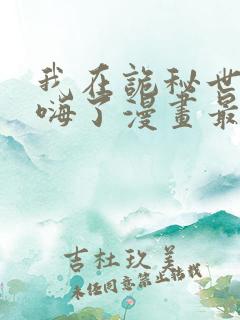 我在詭秘世
嗨了漫畫最
吉杜玖美
未经同意禁止转载